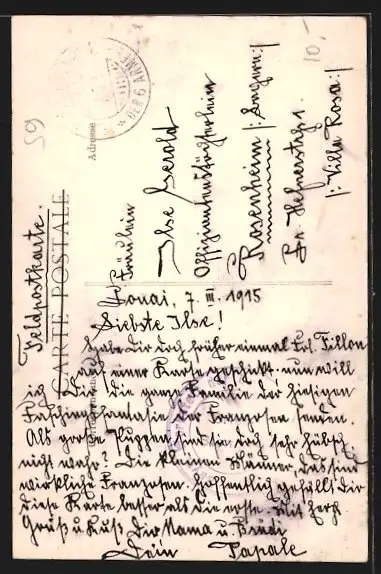 Feldpostkarte.
CARTE POSTALE
Adresse
DER 6. ARMEE
59
10.-
Fräulein
Ilse Gerold
Offizierstöchterheim
Rosenheim |: Bayern :|
|: Villa Rosa :|
Douai, 7. III. 1915
Liebste Ilse!
Habe Dir doch früher einmal Frl. Tillon
auf einer Karte geschickt. nun will
ich Dir die ganze Familie der hiesigen
Faschingsfantasie der Franzosen senden.
Als große Puppen sind sie doch sehr hübsch,
nicht wahr? Die kleinen Männer, das sind
wirkliche Franzosen. Hoffentlich gefällt Dir
diese Karte besser als die erste. Mit herzl.
Gruß u. Kuß Dir Mama u.
Dein Papale